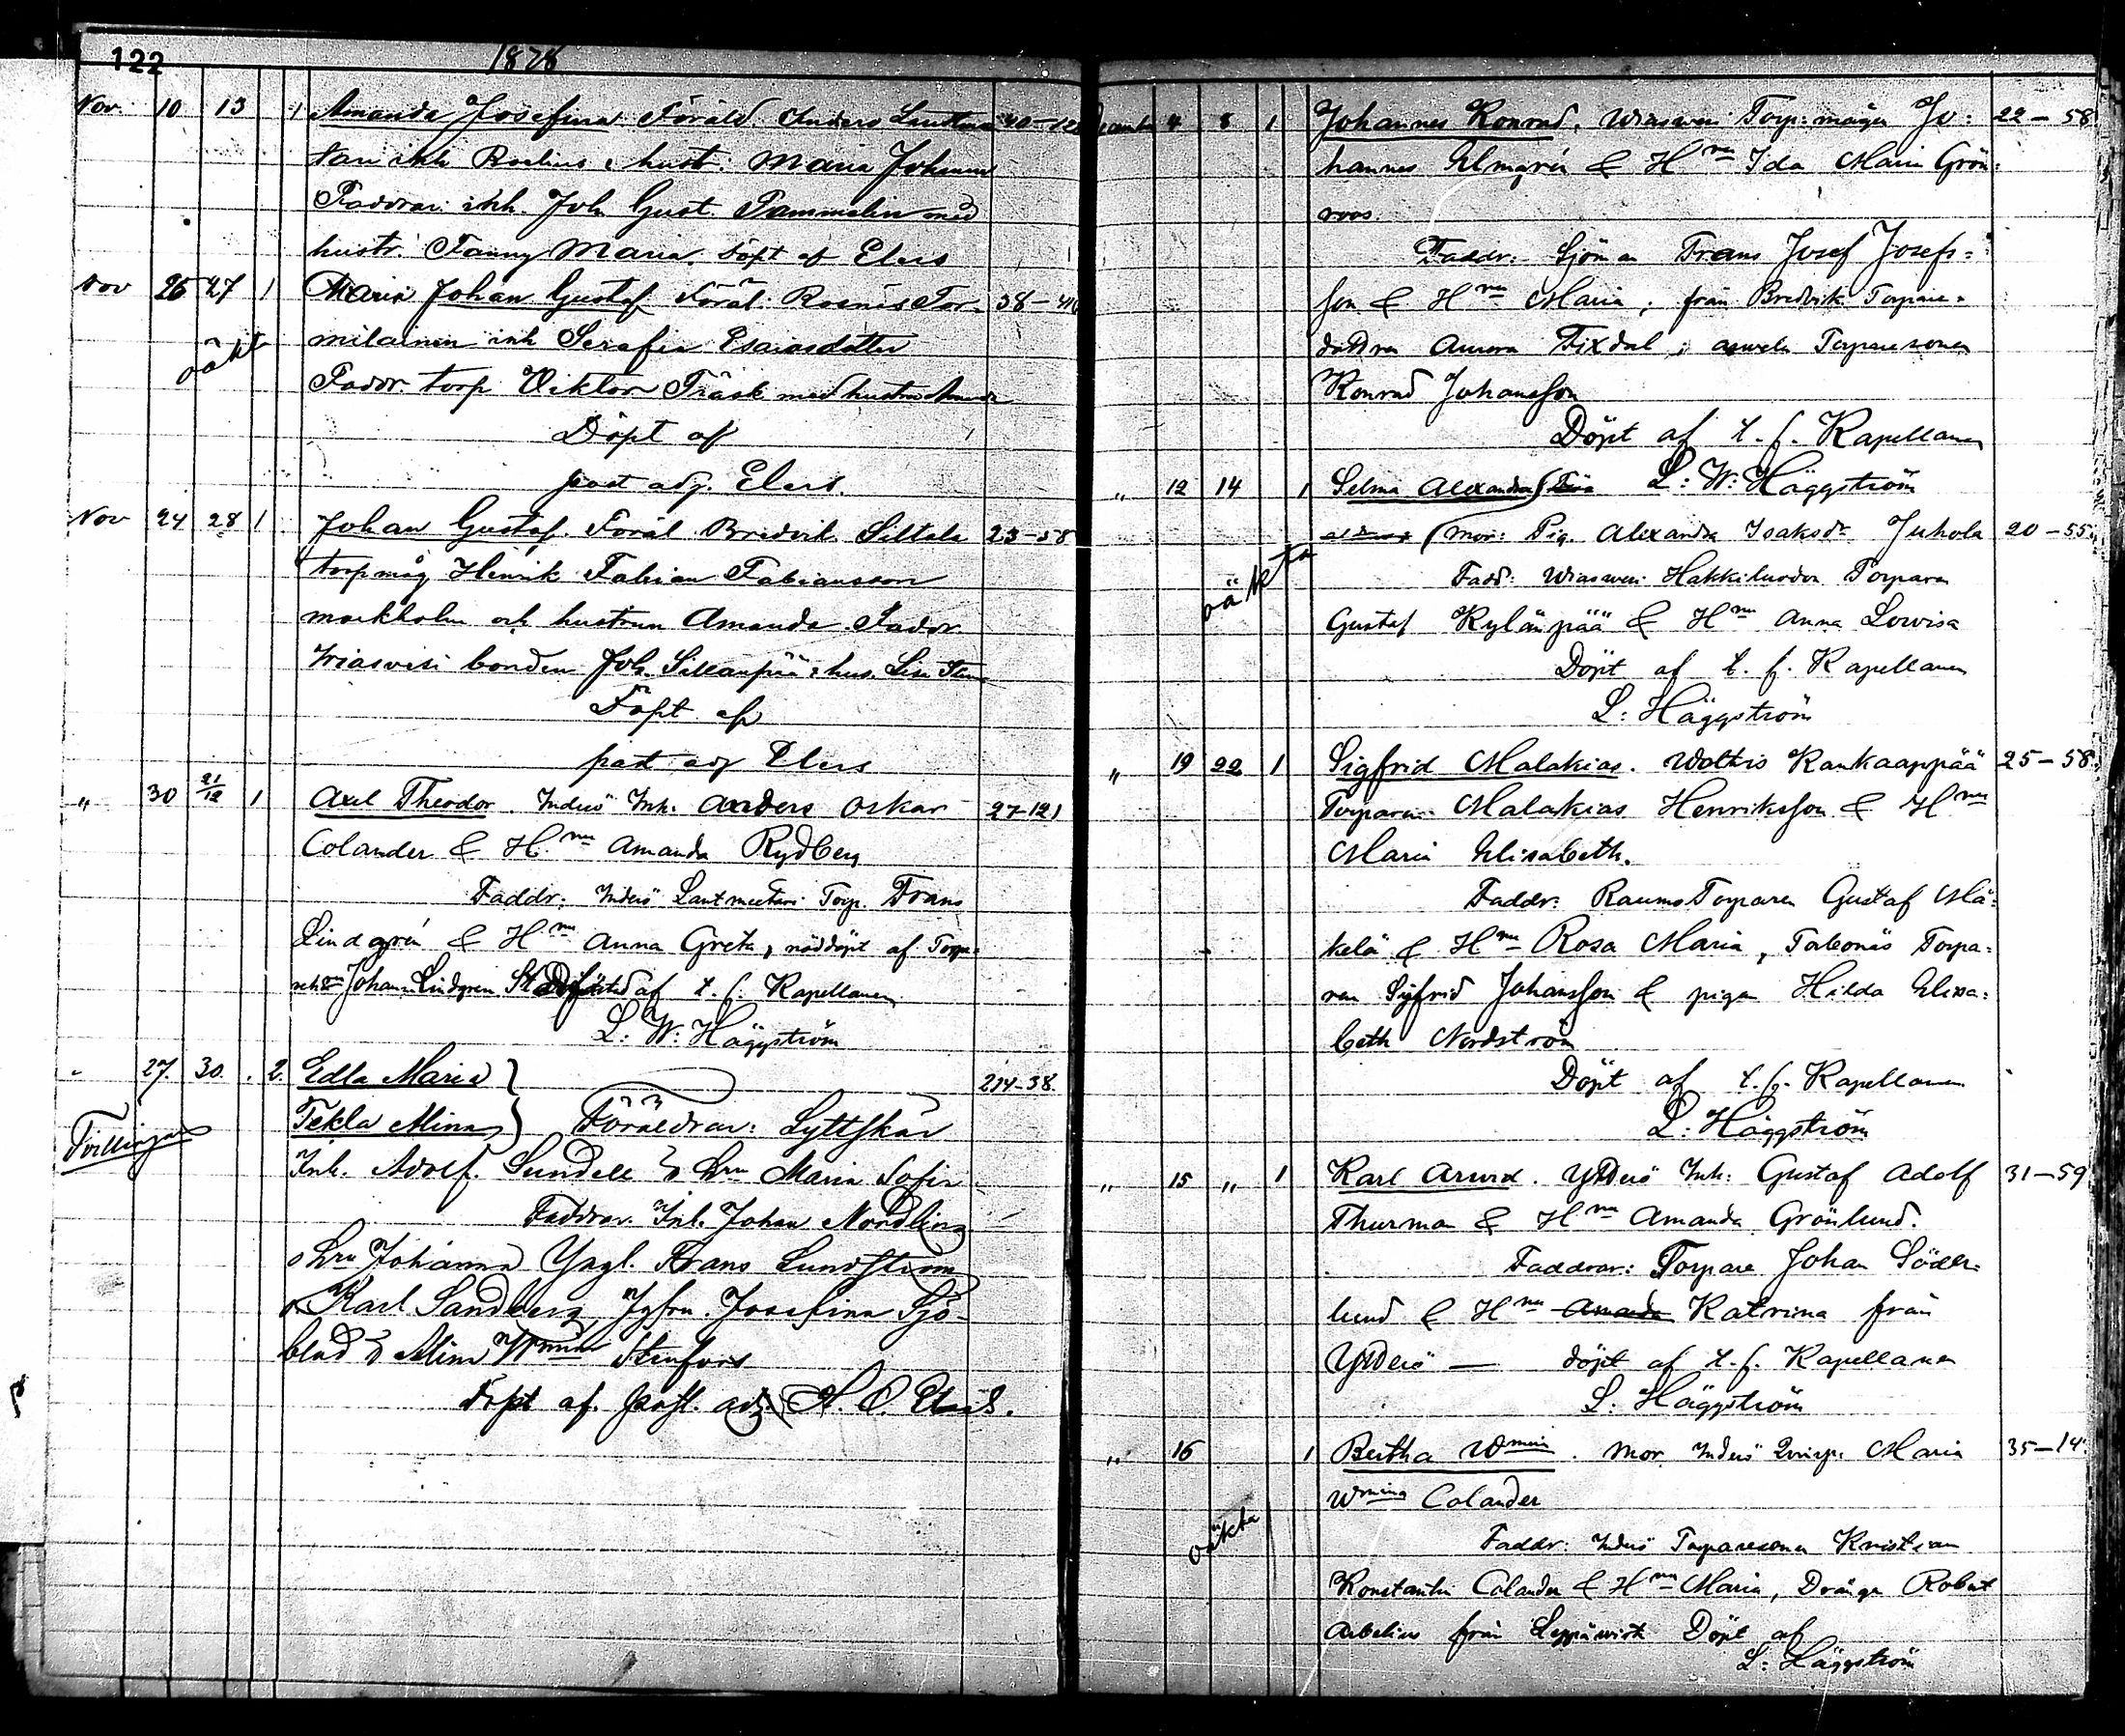 122
1878
Nov. 10 13 1 Amanda Josefina Föräld. Anders 40-128
inh hust: Maria Johanna
Faddrar inh. Joh Gust. Tammelin med
hustr. Fanny Maria. döpt af Elers
Nov 26 27 1 Maria Johan Gustaf Föräl. Tor- 38-
oäkta
milainen inh Serafia Esaiasdotter
Faddr. torp Viktor Träsk med hustru Amanda
Döpt af
past adj. Elers.
Nov 24 28 1 Johan Gustaf. Föräl Bredvik Siltala 23-58
torpmåg Henrik Fabian Fabiansson
markholm och hustrun Amanda. Faddr.
Wiasvesi bonden Joh. Sillanpää & hus. Lisa
Döpt af
past adj Elers
" 30 21/12 1 Axel Theodor. Inderö Inh. Anders Oskar 27-121
Colander & H:nu Amanda Rydberg
Faddr: Inderö Lantmeetari Torp. Frans
Lindgrén & H:nu Anna Greta, nöddöpt af Torpa-
Johan Lindgren. af t. f. Kapellanen
L: W: Häggström
" 27. 30. 2. Edla Maria } 214-38.
Tvillingar
Tekla Mina } Föräldrar: Lyttskär
Inh. Adolf. Sundell & Hru Maria Sofia
Faddrar. Inh. Johan Nordling
o Hru Johanna Yngl. Frans Lundström
o Karl Sandberg, Jgfru. Josefina Sjö-
blad & Mina Stenfors
Döpt af. past. adj. H. O. Elers.
December 4 8 1 Johannes Konrad. Wiasvesi Torp:mågen Jo: 22-58
hannes Elmgrén & H:nu Ida Maria Grön:
roos.
Faddr: Sjöman Frans Josef Josefs=
son & H:nu Maria; från Bredvik Torpare-
dottren Aurora Fixdal, Torparesonen
Konrad Johansson
Döpt af t. f. Kapellanen
" 12 14 1 Selma Alexandra L: W: Häggström
mor: Pig. Alexandra Isaksdr Juhola 20-55.
oäkta
Fadd: Wiasvesi Hakkiluodon Torparen
Gustaf Kylänpää & H:nu Anna Lovisa
Döpt af t. f. Kapellanen
L: Häggström
" 19 22 1 Sigfrid Malakias. Woltis Kankaanpää 25-58.
Torparen Malakias Henriksson & H:nu
Maria Elisabeth.
Faddr: Raumo Torparen Gustaf Mä:
kelä & H:nu Rosa Maria, Torbonäs Torpa:
ren Sigfrid Johansson & pigan Hilda Elisa:
beth Nordström
Döpt af t. f. Kapellanen
L: Häggström
" 15 " 1 Karl Arvid. Ytterö Inh: Gustaf Adolf 31-59
Thurman & H:nu Amanda Grönlund.
Faddrar: Torpare Johan Söder-
lund & H:nu Amanda Katrina från
Ytterö — döpt af t. f. Kapellanen
L: Häggström
" 16 1 Bertha Wmina. Mor Inderö Qvinsp: Maria 35-14.
Wmina Colander
oäkta
Faddr: Inderö Torparesonen Kristian
Konstantin Colander & H:nu Maria, Drängen Robert
från Leppäwirta Döpt af
L: Häggström